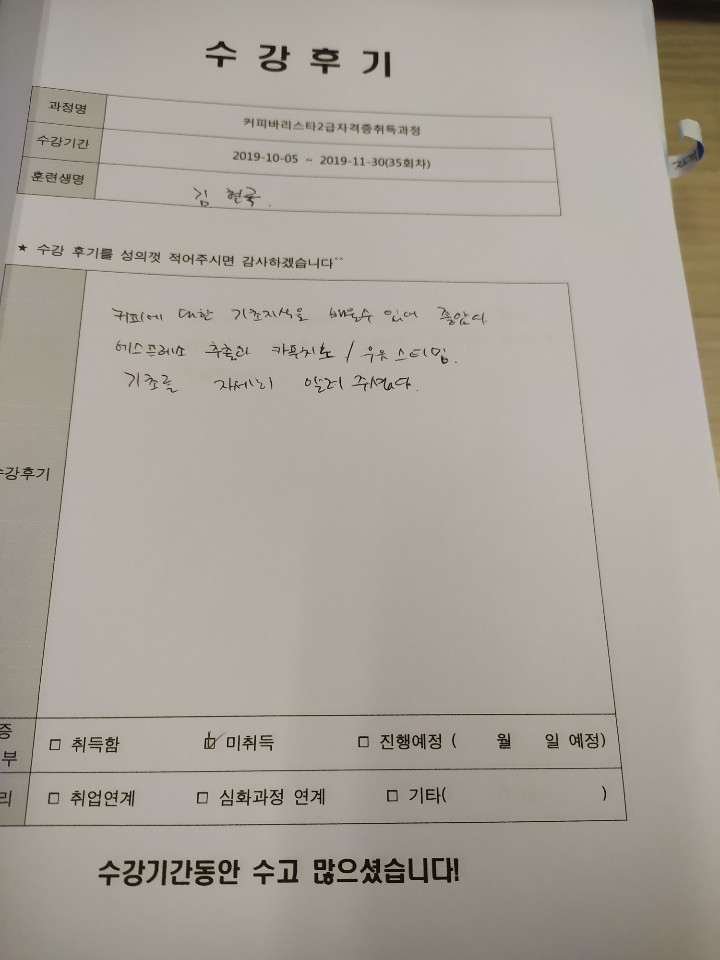 수 강 후 기
과정명 커피바리스타2급자격증취득과정
수강기간 2019-10-05 ~ 2019-11-30(35회차)
훈련생명 김 현국.
★ 수강 후기를 성의껏 적어주시면 감사하겠습니다^^
커피에 대한 기초지식을 배울수 있어 좋았다
에스프레소 추출과 카푸치노 / 우유 스티밍.
기초를 자세히 알려 주셨다.
수강후기
증
부
□ 취득함 □ 미취득 □ 진행예정 ( 월 일 예정)
리 □ 취업연계 □ 심화과정 연계 □ 기타( )
수강기간동안 수고 많으셨습니다!